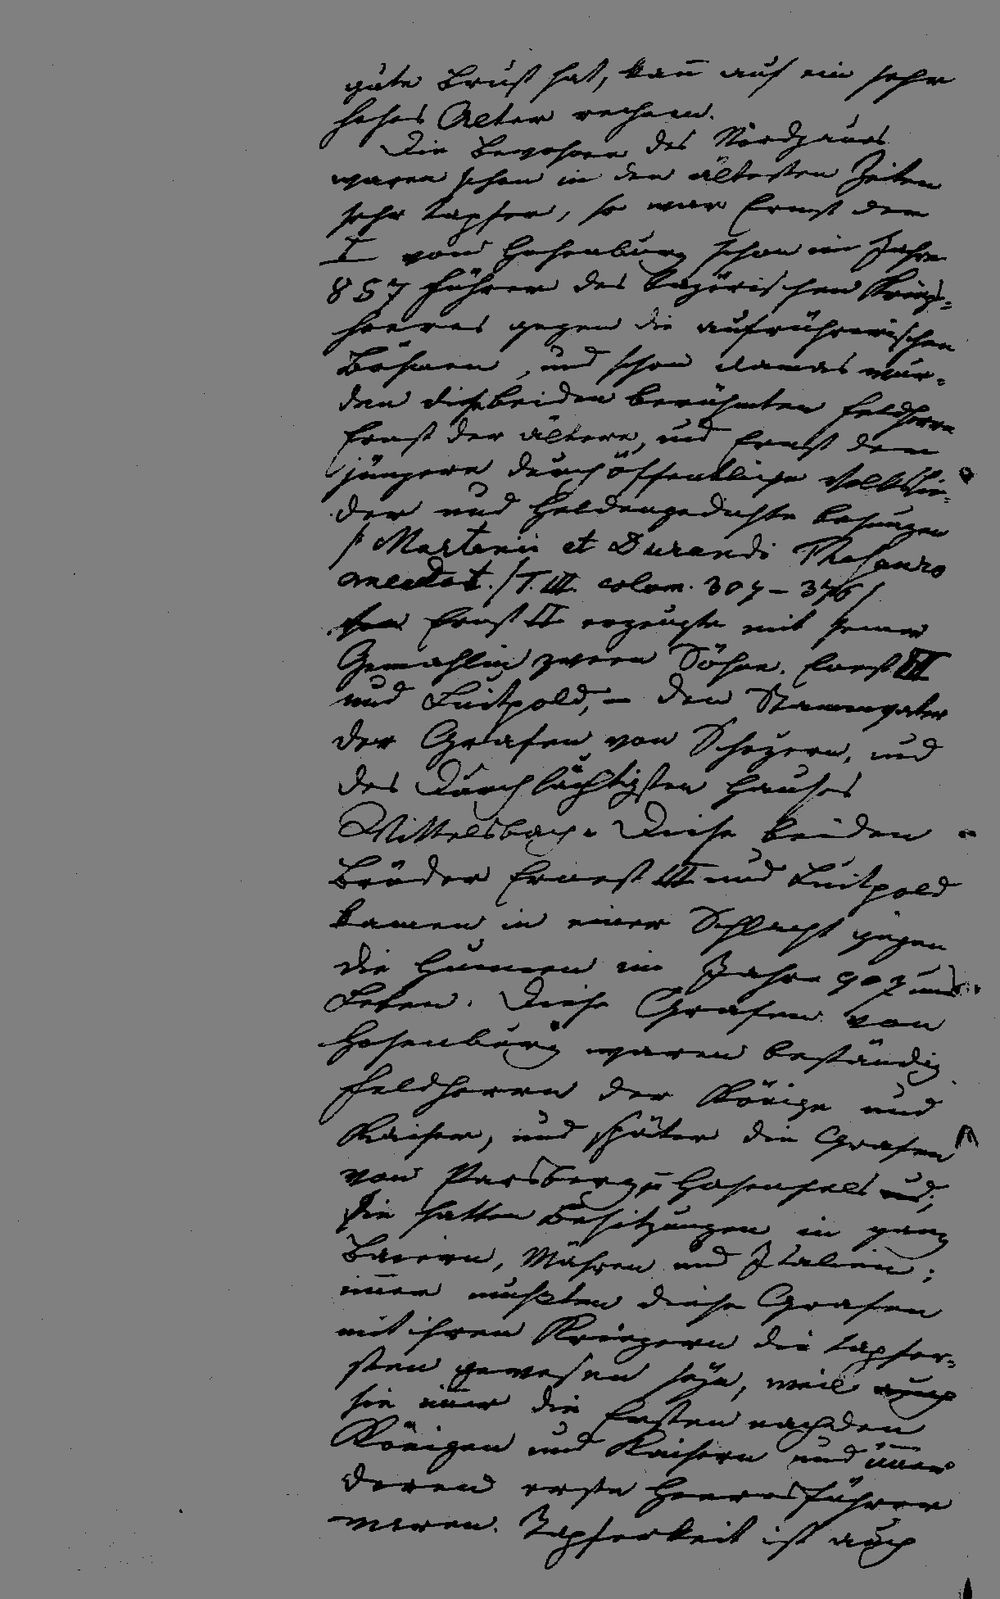 gute Brust hat, kan̄ auf ein sehr
hohes Alter rechnen.
Die Bewohner des Nordgaues
waren schon in den ältesten Zeiten
sehr tapfer, so war Ernst der
I von Hohenburg schon im Jahre
857 Führer des bayerischen Kriegs-
heeres gegen die aufrührerischen
Böhmen, und schon damals wur-
den die beiden berühmten Feldherrn
Ernst der ältere, und Ernst der
jüngere durch öffentliche Volkslie-
der und Heldengedichte besungen
/: Martenii et Durandi Thesauro
anecdot. /T. III. colom. 307 – 376/
Ernst II erzeugte mit seiner
Gemahlin zween Söhne, Ernst III
und Luitpold, – den Stammvater
der Grafen von Scheyern, und
des Durchlauchtigsten Hauses
Wittelsbach. Diese beiden
Brüder Ernest III und Luitpold
kamen in einer Schlacht gegen
die Hunnen im Jahre 907 ums
Leben. Diese Grafen von
Hohenburg waren beständig
Feldherrn der Könige und
Kaiser, und später die Grafen
von Parsberg u Hohenfels
sie hatten Besitzungen in ganz
Baiern, Mähren und Italien;
im̄er mußten diese Grafen
mit ihren Kriegern die tapfer-
sten gewesen seyn, weil auch
sie im̄er die Ersten nach den
Königen und Kaisern und im̄er
deren erste Heeresführer
waren. Tapferkeit ist auch